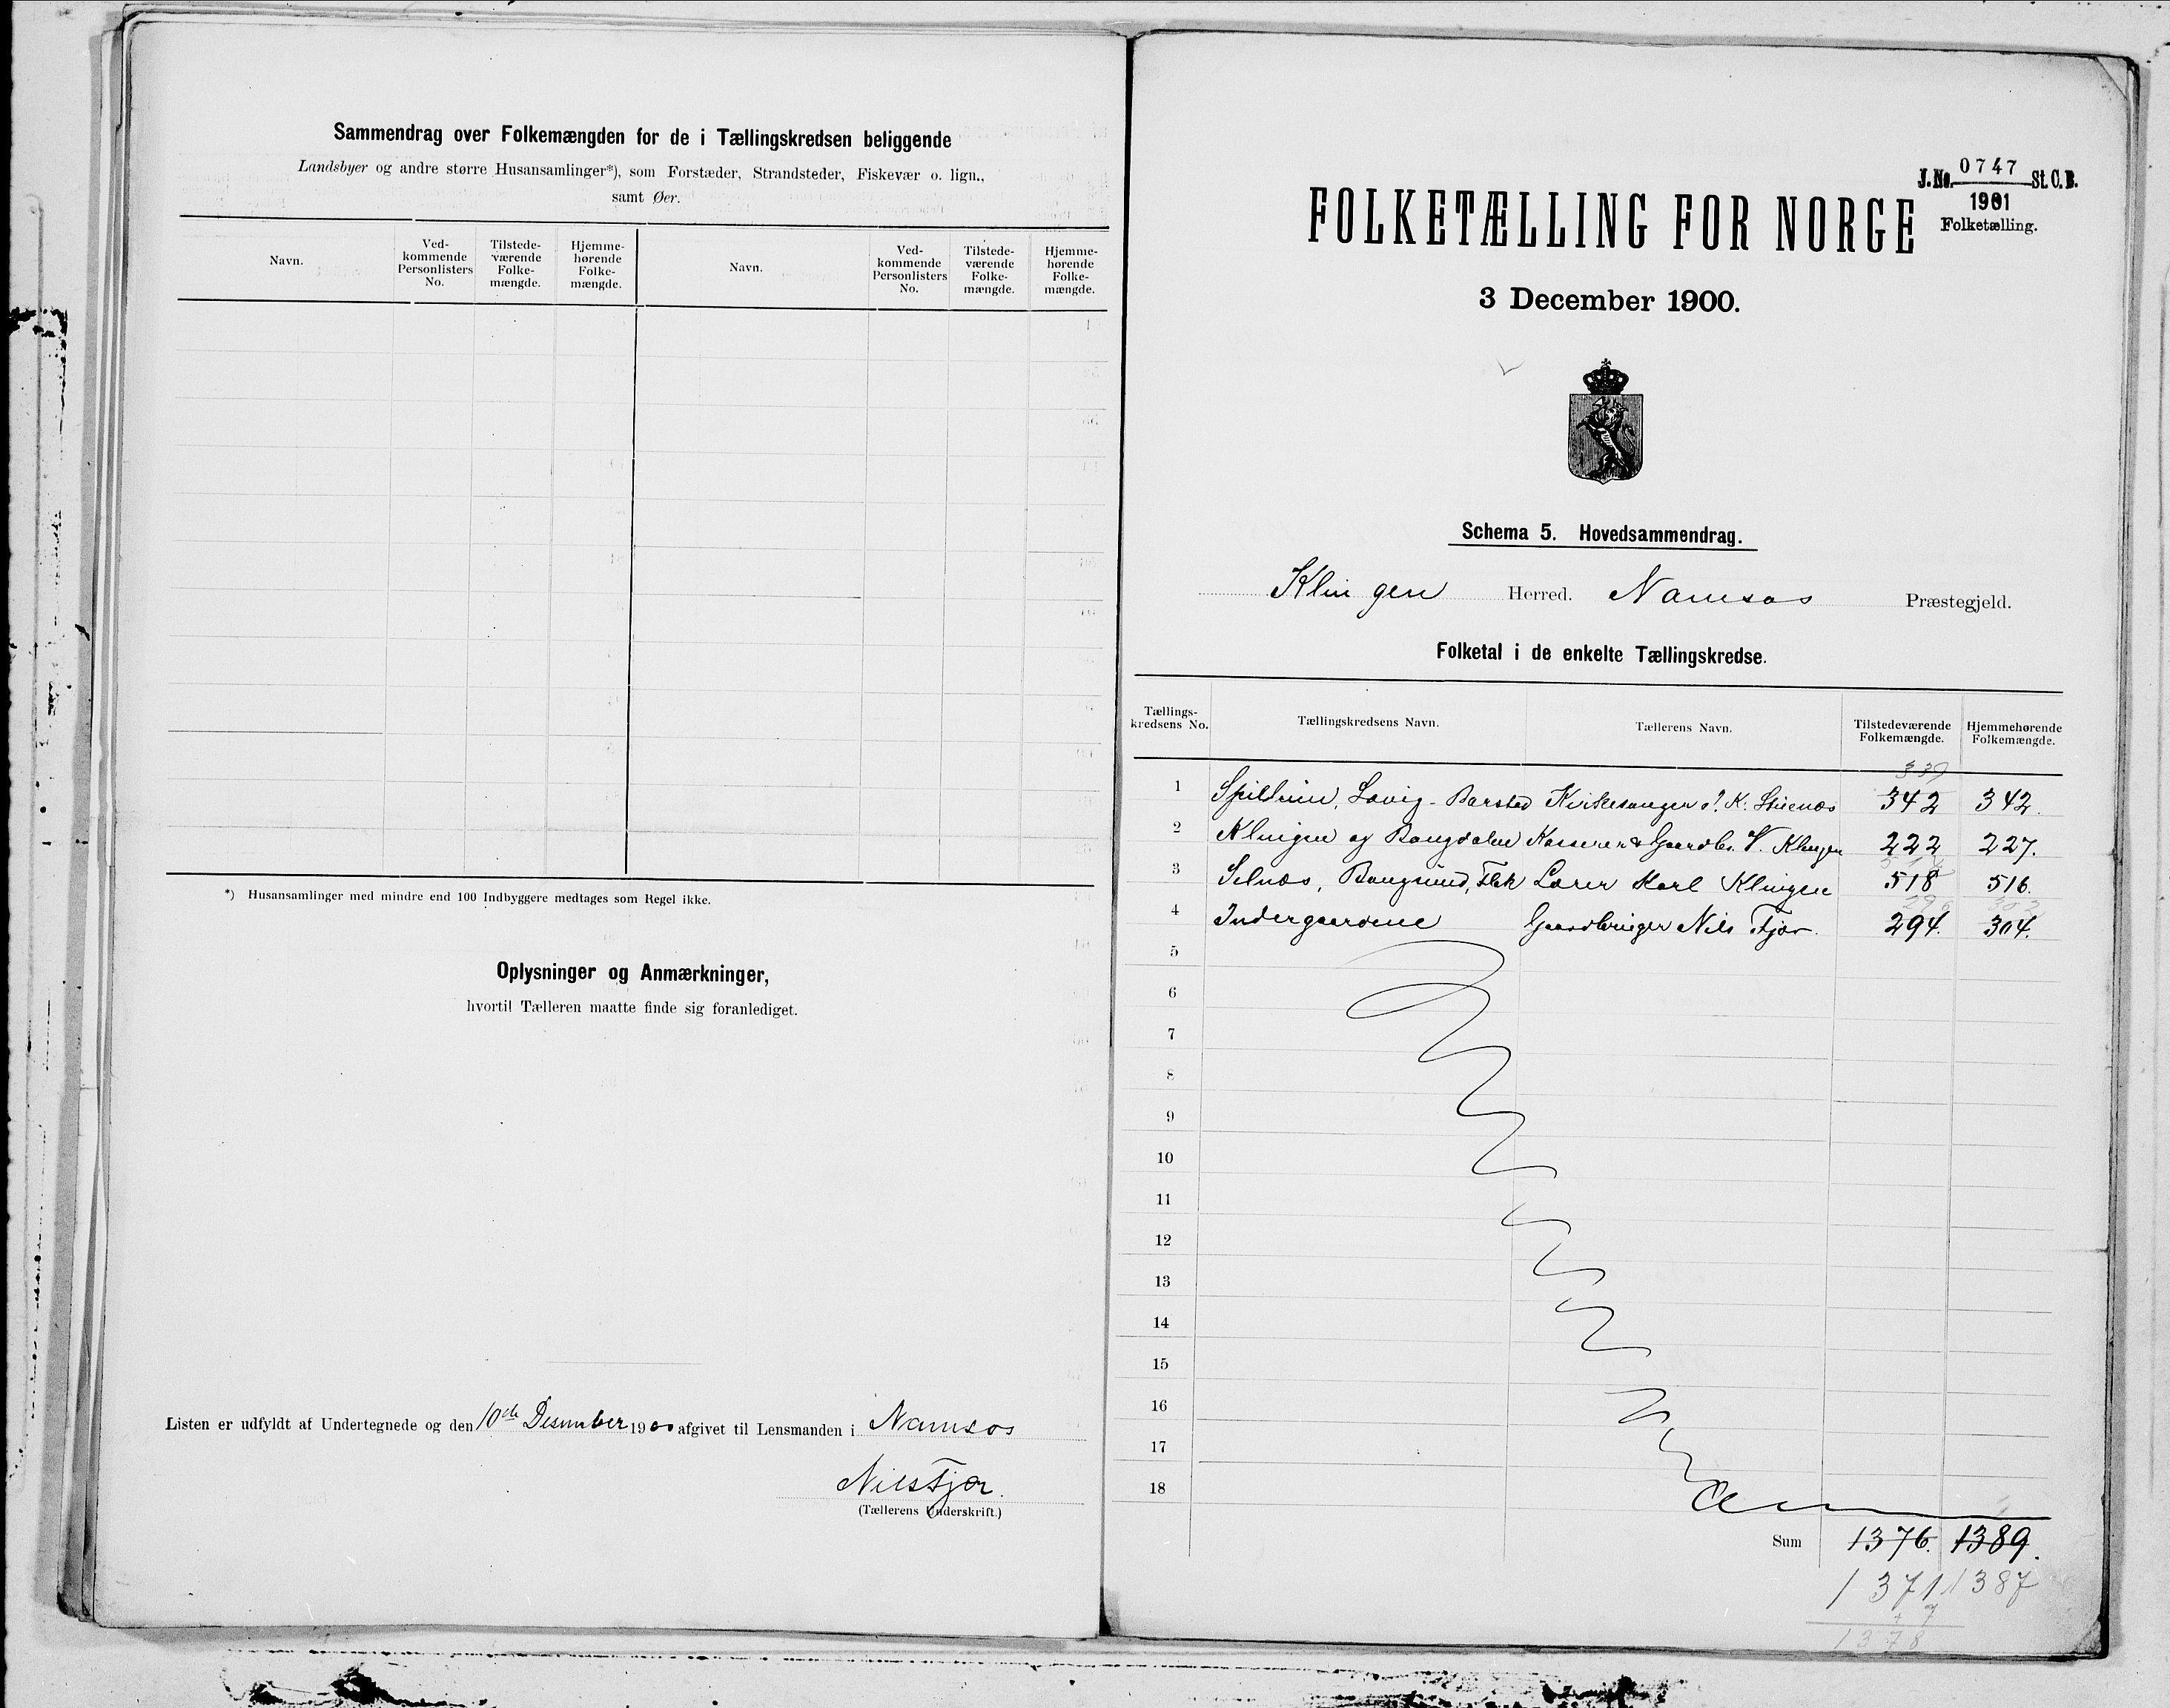 Sammendrag over Folkemængden for de i Tællingskredsen beliggende
Landsbyer og andre større Husansamlinger*), som Forstæder, Strandsteder, Fiskevær o. lign.,
samt Øer.
Navn. Ved-kommende Personlisters No. Tilstede-værende Folke-mængde. Hjemme-hørende Folke-mængde. Navn. Ved-kommende Personlisters No. Tilstede-værende Folke-mængde. Hjemme-hørende Folke-mængde.
*) Husansamlinger med mindre end 100 Indbyggere medtages som Regel ikke.
Oplysninger og Anmærkninger,
hvortil Tælleren maatte finde sig foranlediget.
Listen er udfyldt af Undertegnede og den 10de Desember 1900 afgivet til Lensmanden i Namsos
Nils Fjær.
(Tællerens Underskrift.)
J. No. 0747 St. C. B.
1901
Folketælling.
FOLKETÆLLING FOR NORGE
3 December 1900.
Schema 5. Hovedsammendrag.
Klingen Herred. Namsos Præstegjeld.
Folketal i de enkelte Tællingskredse.
Tællings-kredsens No. Tællingskredsens Navn. Tællerens Navn. Tilstedeværende Folkemængde. Hjemmehørende Folkemængde.
339
1 Spillum, Lavig - Barsted Kirkesanger O. K. 342 342.
2 Klingen og Bangdalen Kasserer & Gaardbr. V. Klingen 222 227.
3 Selnæs, Bangsund, Flak Lærer Karl Klingen 518 516.
4 Indergaardene Gaardbruger Nils Fjær. 294. 304.
5
6
7
8
9
10
11
12
13
14
15
16
17
18
Sum 1376. 1389.
1371 1387
+ 7
1378